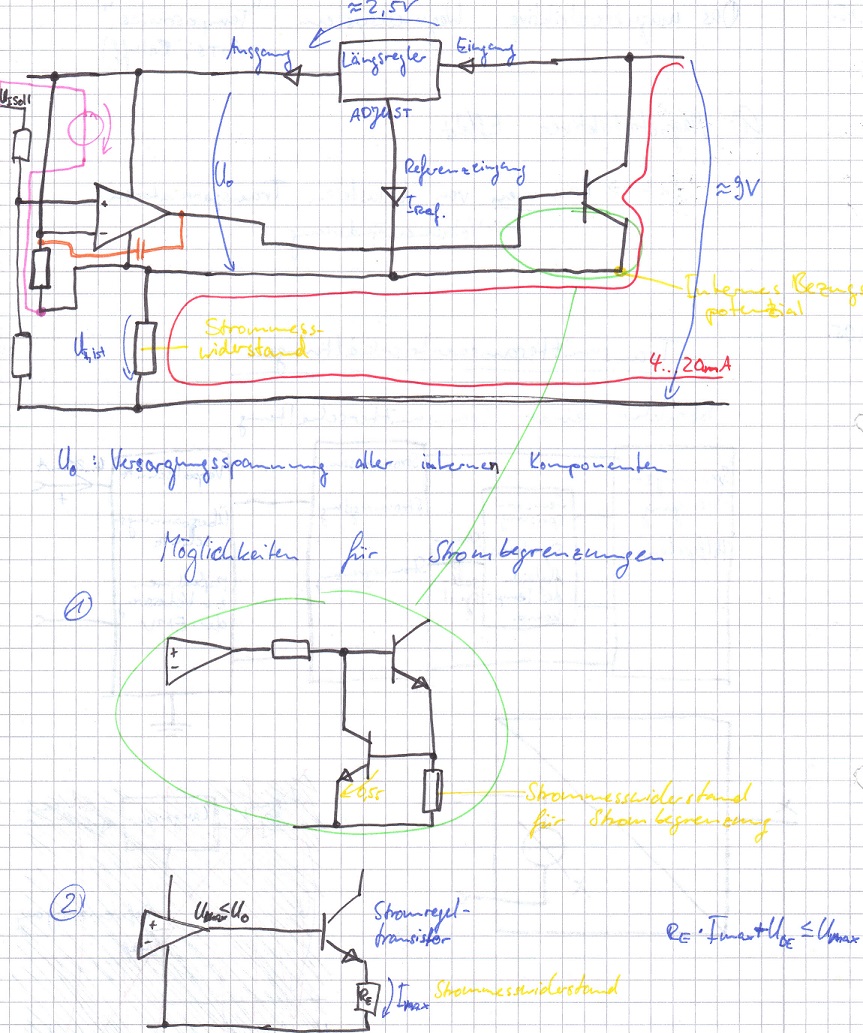 ≈ 2,5V
Ausgang
Längsregler
Eingang
UIsoll
ADJUST
U₀
Referenzeingang
IRef.
≈ 9V
+
-
Internes Bezugs
potenzial
Strommess-
widerstand
UI,ist
4...20mA
U₀ : Versorgungsspannung aller internen Komponenten
Möglichkeiten für Strombegrenzungen
①
+
-
Strommesswiderstand
für Strombegrenzung
②
+
-
Umax ≤ U₀
Stromregel-
transistor
RE · Imax + UBE ≤ Umax
RE
Imax
Strommesswiderstand